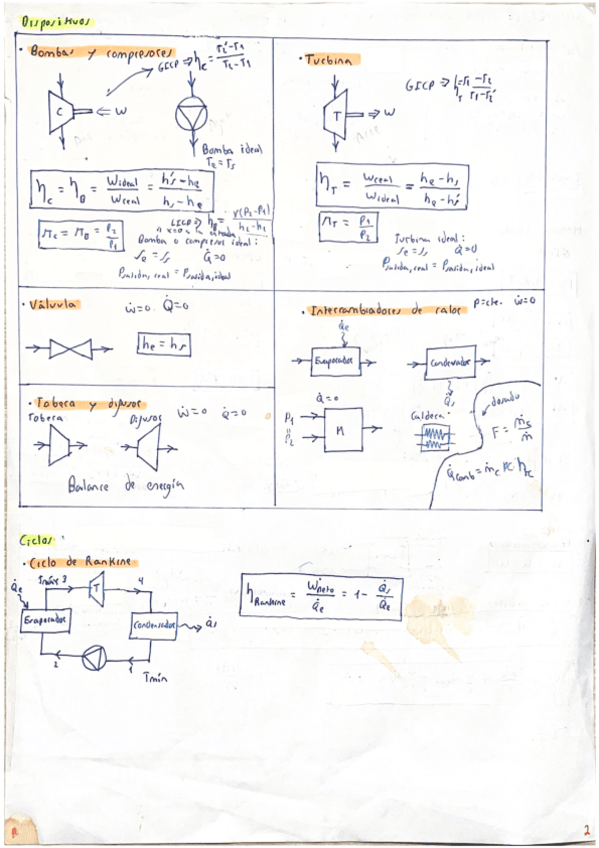 Dispositivos
· Bombas y compresores
GICP ⇒ η_c = (T₂'-T₁)/(T₂-T₁)
C ⇐ W
Bomba ideal
T_e = T_s
η_c = η_B = W_ideal/W_real = (h_s'-h_e)/(h_s-h_e)
r_c = r_B = P₂/P₁
η_B = v(P₂-P₁)/(h₂-h₁)
Bomba o compresor ideal:
s_e = s_s Q̇=0
P_salida,real = P_salida,ideal
· Turbina
GICP ⇒ η_T = (T₁-T₂)/(T₁-T₂')
T ⇒ W
η_T = W_real/W_ideal = (h_e-h_s)/(h_e-h_s')
r_T = P₁/P₂
Turbina ideal:
s_e = s_s Q̇=0
P_salida,real = P_salida,ideal
· Válvula
ẇ=0 Q̇=0
h_e = h_s
· Intercambiadores de calor P=cte. ẇ=0
Q̇e
Evaporador
Condensador
Q̇s
Q̇=0
P₁
=
P₂
M
Caldera:
dosado
F = ṁ_c/ṁ
Q̇_comb = ṁ_c PC η_c
· Tobera y difusor
ẇ=0 Q̇=0
Tobera
Difusor
Balance de energía
Ciclos
· Ciclo de Rankine
Q̇e
Tmáx 3
T
4
Evaporador
Condensador
Q̇s
2
1
Tmín
η_Rankine = Ẇneto/Q̇e = 1 - Q̇s/Q̇e
2